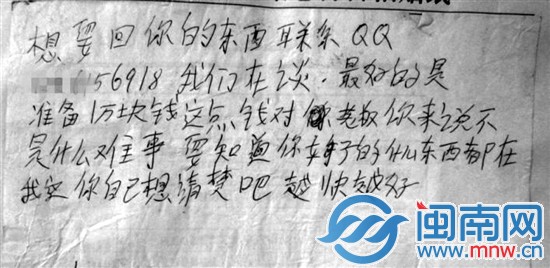 想要回你的东西联系QQ
156918 我们在谈.最好的是
准备1万块钱这点钱对老板你来说不
是什么难事 要知道你车子的什么东西都在
我这 你自己想清楚吧 越快越好
闽南网
www.mnw.cn